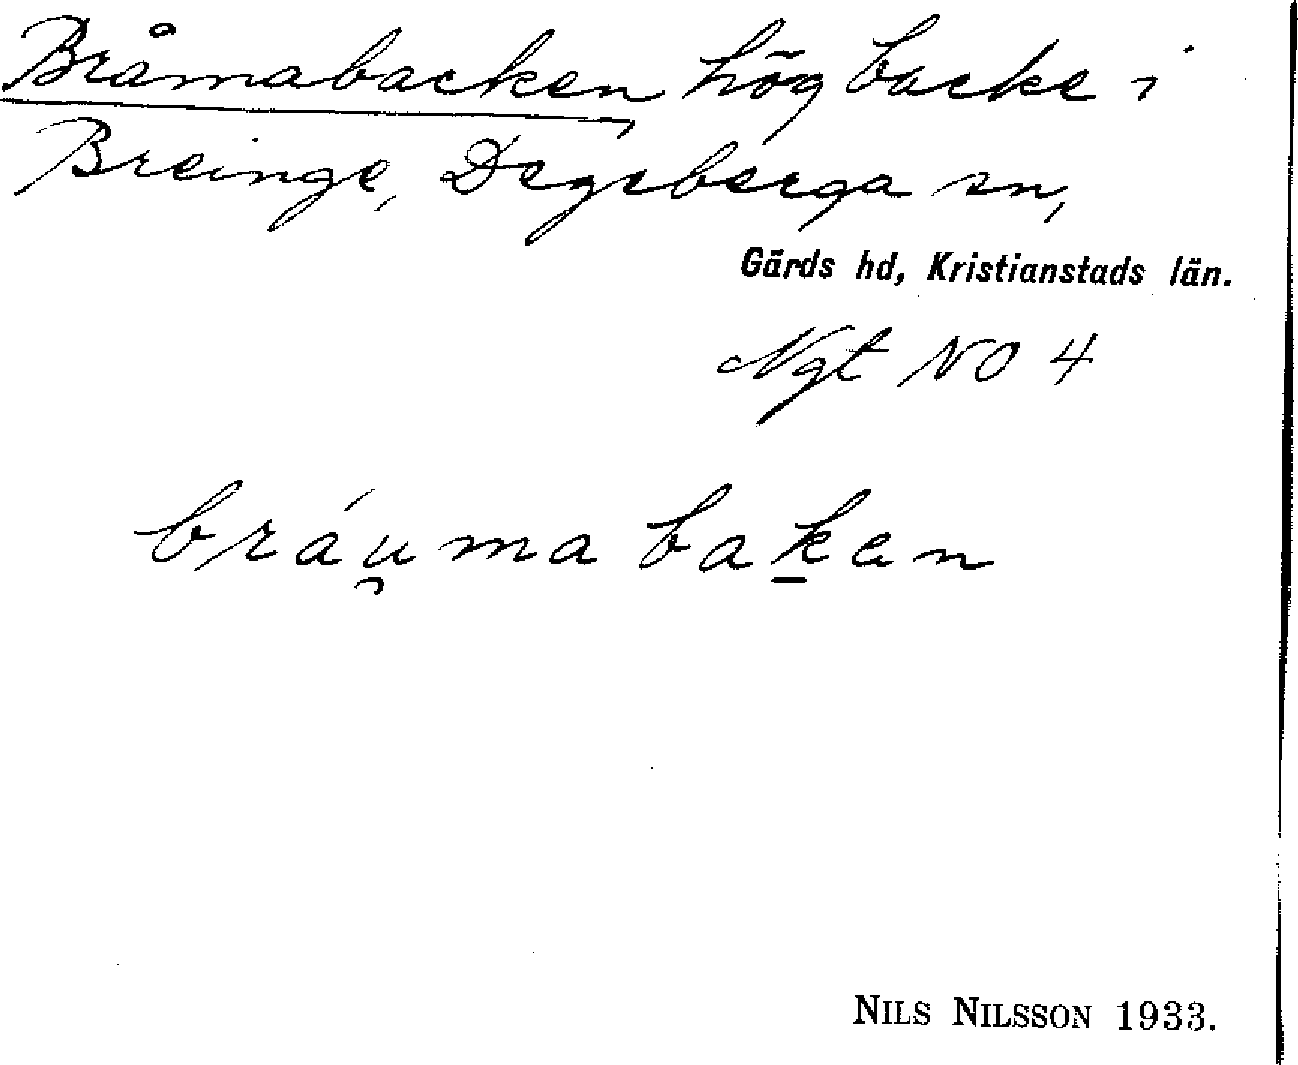 Bråmabacken, hög backe i
Breinge, Degeberga sn,
Gärds hd, Kristianstads län.
Ngt NO 4
bráu̯ma bak̲en
NILS NILSSON 1933.